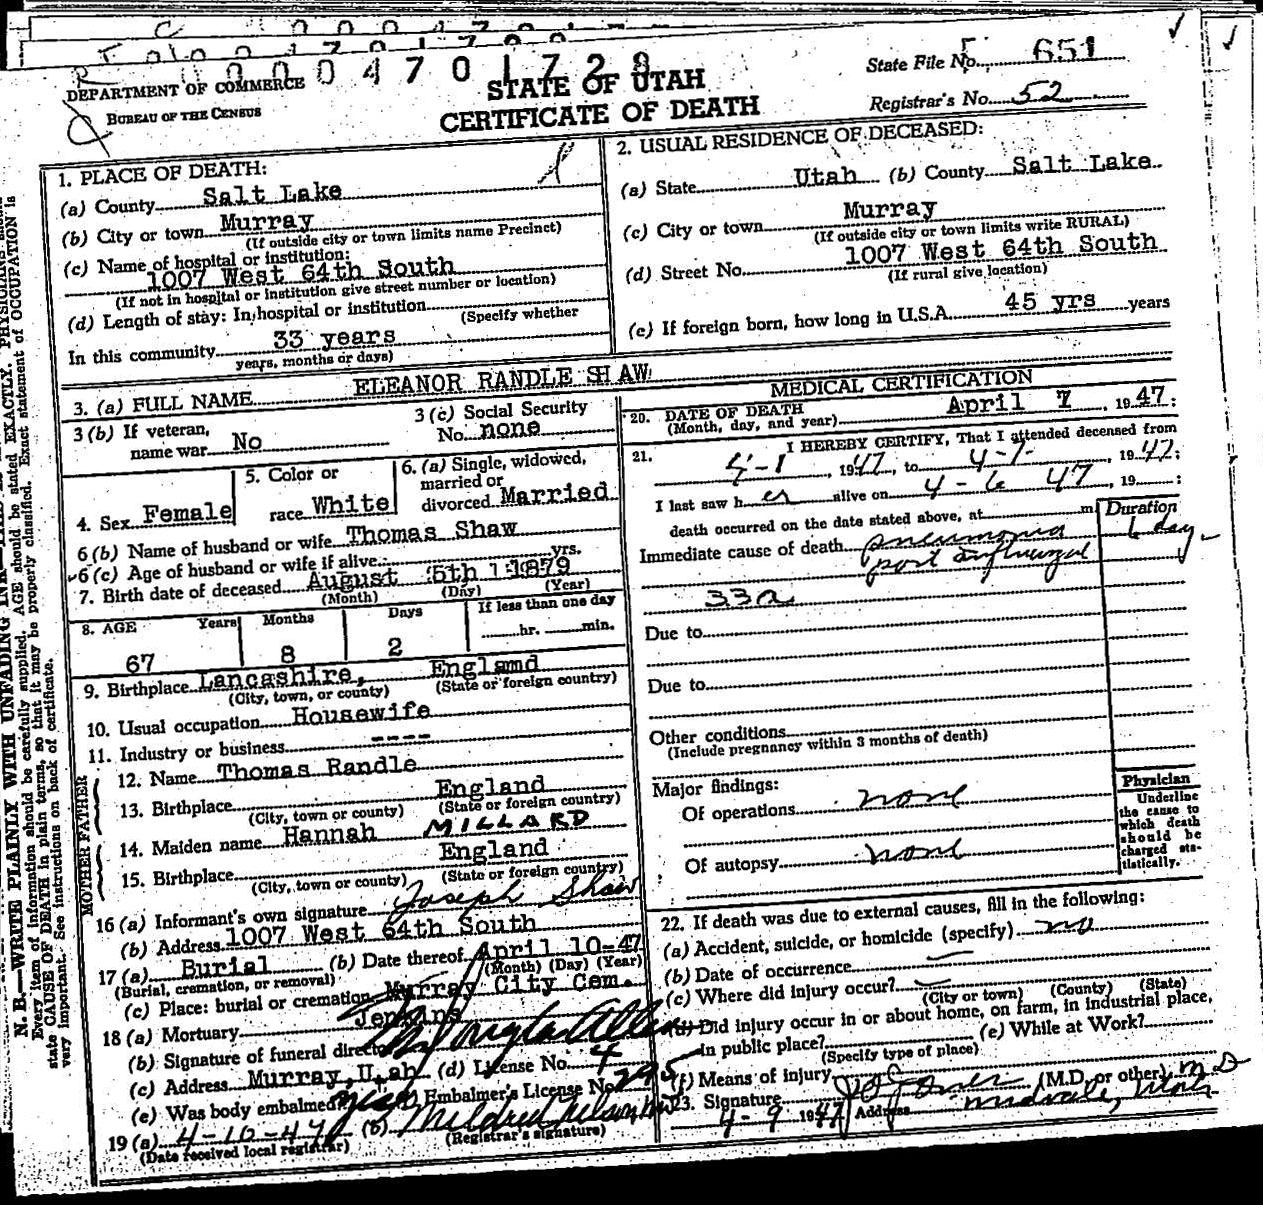 0 0 0 4 7 0 1 7 2 8
DEPARTMENT OF COMMERCE
BUREAU OF THE CENSUS
STATE OF UTAH
CERTIFICATE OF DEATH
State File No. 651
Registrar's No. 52
1. PLACE OF DEATH:
(a) County Salt Lake
(b) City or town Murray
(If outside city or town limits name Precinct)
(c) Name of hospital or institution:
1007 West 64th South
(If not in hospital or institution give street number or location)
(d) Length of stay: In hospital or institution
(Specify whether
In this community 33 years
years, months or days)
2. USUAL RESIDENCE OF DECEASED:
(a) State Utah (b) County Salt Lake
(c) City or town Murray
(If outside city or town limits write RURAL)
(d) Street No. 1007 West 64th South
(If rural give location)
(e) If foreign born, how long in U.S.A. 45 yrs years
3. (a) FULL NAME ELEANOR RANDLE SHAW
3 (b) If veteran,
name war No
3 (c) Social Security
No. none
4. Sex Female
5. Color or
race White
6. (a) Single, widowed,
married or
divorced Married
6 (b) Name of husband or wife Thomas Shaw
6 (c) Age of husband or wife if alive yrs.
7. Birth date of deceased August 5th 1879
(Month) (Day) (Year)
8. AGE Years Months Days If less than one day
67 8 2 hr. min.
9. Birthplace Lancashire, England
(City, town, or county) (State or foreign country)
10. Usual occupation Housewife
11. Industry or business ----
FATHER
12. Name Thomas Randle
13. Birthplace England
(City, town or county) (State or foreign country)
MOTHER
14. Maiden name Hannah MILLARD
15. Birthplace England
(City, town or county) (State or foreign country)
16 (a) Informant's own signature Joseph Shaw
(b) Address 1007 West 64th South
17 (a) Burial (b) Date thereof April 10-47
(Burial, cremation, or removal) (Month) (Day) (Year)
(c) Place: burial or cremation Murray City Cem.
18 (a) Mortuary Jenkins
(b) Signature of funeral director Douglas Allen
(c) Address Murray, Utah (d) License No. 4
(e) Was body embalmed? yes Embalmer's License No. 295
19 (a) 4-10-47 (b) Mildred Nelson
(Date received local registrar) (Registrar's signature)
MEDICAL CERTIFICATION
20. DATE OF DEATH April 7, 1947;
(Month, day, and year)
21. I HEREBY CERTIFY, That I attended deceased from
4-1, 1947, to 4-7-, 1947;
I last saw her alive on 4-6 47, 19 ;
death occurred on the date stated above, at m. Duration
Immediate cause of death pneumonia 6 day
post influenzal
33a
Due to
Due to
Other conditions
(Include pregnancy within 3 months of death)
Major findings:
Of operations none
Of autopsy none
Physician
Underline
the cause to
which death
should be
charged sta-
tistically.
22. If death was due to external causes, fill in the following:
(a) Accident, suicide, or homicide (specify) no
(b) Date of occurrence
(c) Where did injury occur?
(City or town) (County) (State)
(d) Did injury occur in or about home, on farm, in industrial place,
in public place? (e) While at Work?
(Specify type of place)
(f) Means of injury
23. Signature (M.D. or other) MD
4-9 1947 Address Midvale, Utah
N. B.—WRITE PLAINLY WITH UNFADING INK
Every item of information should be carefully supplied. AGE should be stated EXACTLY. PHYSICIANS should
state CAUSE OF DEATH in plain terms, so that it may be properly classified. Exact statement of OCCUPATION is
very important. See instructions on back of certificate.